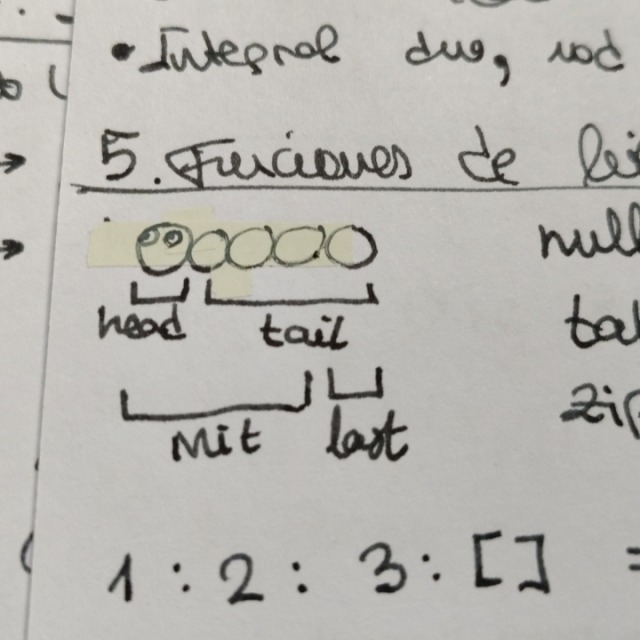 • Integral duo, mod
5. Funciones de li
null
head tail
ta
init last
zip
1 : 2 : 3 : [] =